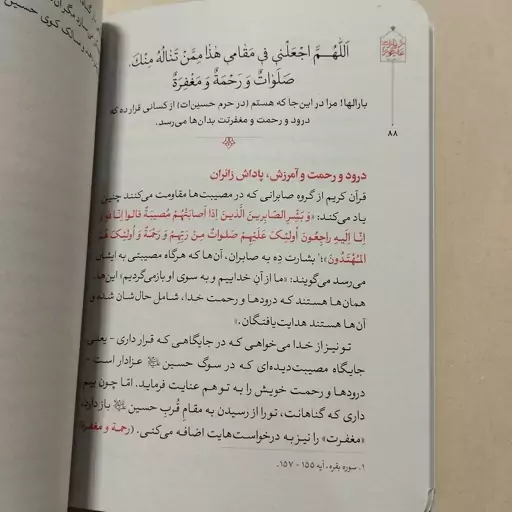 اَللّٰهُمَّ اجْعَلْنی فی مَقامی هٰذا مِمَّنْ تَنالُهُ مِنْكَ.
صَلَواتٌ وَ رَحْمَةٌ وَ مَغْفِرَةٌ
بارالها! مرا در این‌جا که هستم (در حرم حسین‌ات) از کسانی قرار ده که
درود و رحمت و مغفرتت بدان‌ها می‌رسد.
۸۸
درود و رحمت و آمرزش، پاداش زائران
قرآن کریم از گروه صابرانی که در مصیبت‌ها مقاومت می‌کنند چنین
یاد می‌کند: «وَ بَشِّرِ الصّابِرینَ الَّذینَ اِذا اَصابَتْهُمْ مُصیبَةٌ قالُوا اِنّا لِلّٰهِ وَ
اِنّا اِلَیهِ راجِعُونَ اُولئِکَ عَلَیْهِمْ صَلَواتٌ مِنْ رَبِّهِمْ وَ رَحْمَةٌ وَ اُولئِکَ هُمُ
الْمُهْتَدُونَ»؛۱ بشارت دِه به صابران، آن‌ها که هرگاه مصیبتی به ایشان
می‌رسد می‌گویند: «ما از آنِ خداییم و به سوی او بازمی‌گردیم» این‌ها،
همان‌ها هستند که درودها و رحمت خدا، شامل حال‌شان شده و
آن‌ها هستند هدایت‌یافتگان.»
تو نیز از خدا می‌خواهی که در جایگاهی که قرار داری - یعنی
جایگاه مصیبت‌دیده‌ای که در سوگ حسین عزادار است -
درودها و رحمت خویش را به تو هم عنایت فرماید. امّا چون بیم
داری که گناهانت، تو را از رسیدن به مقامِ قُربِ حسین باز دارد،
«مغفرت» را نیز به درخواست‌هایت اضافه می‌کنی. (رحمة و مغفرة)
۱. سوره بقره، آیه ۱۵۵ - ۱۵۷.